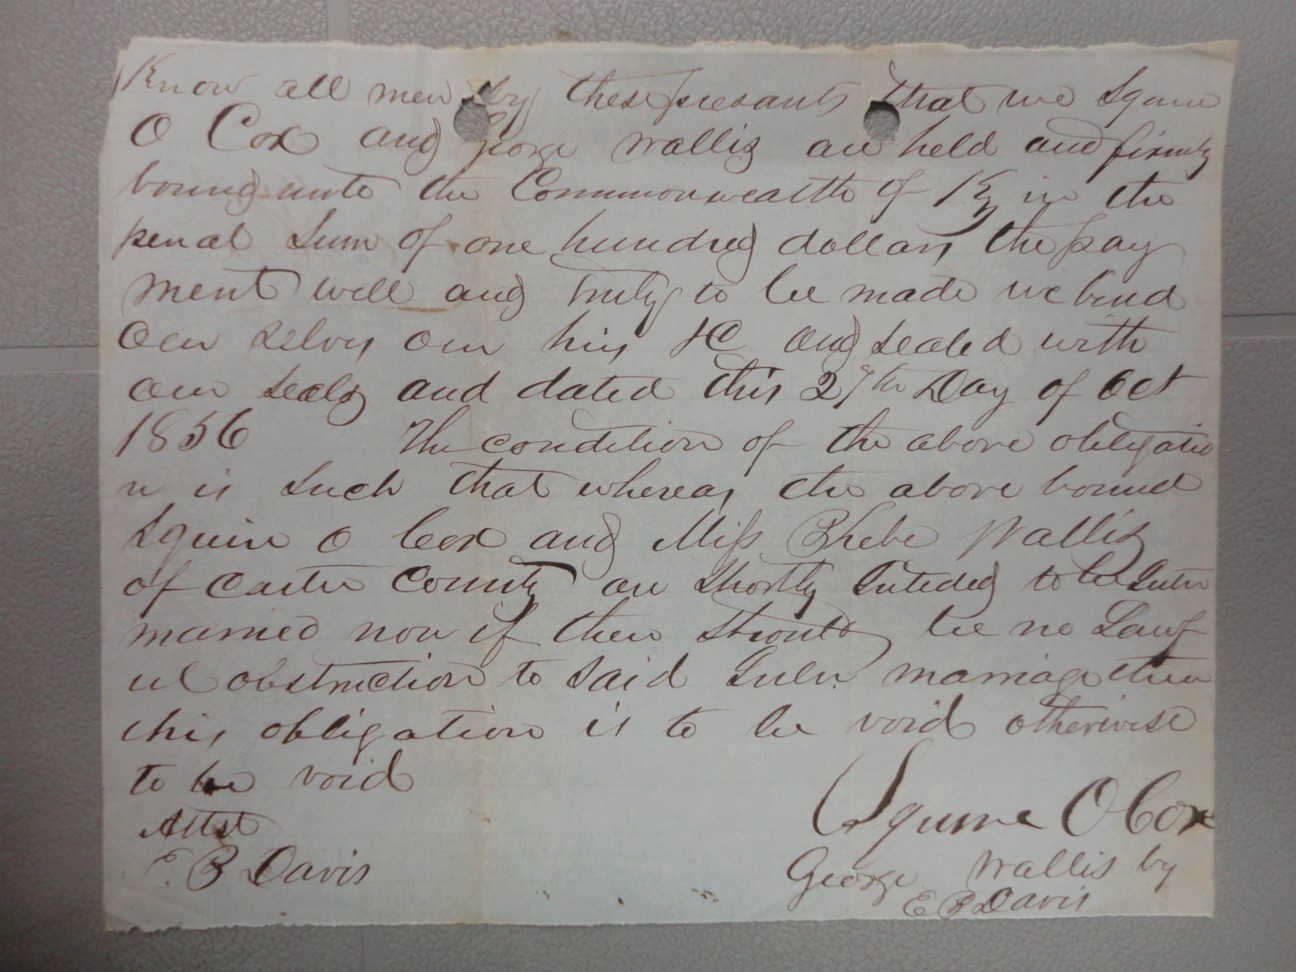 Know all men by these presants that we Squire
O Cox and george Wallis are held and firmly
bound unto the Commonwealth of Ky in the
penal Sum of one hundred dollars the pay
ment well and truly to be made we bind
our selves our his &C and sealed with
our seals and dated this 27th Day of Oct
1856 The condition of the above obligatio
n is such that whereas the above bound
Squire O Cox and Miss Phebe Wallis
of Carter County are Shortly Inteded to be Inter
married now if there should be no Lawf
ul obstruction to said Inter marriage then
this obligation is to be void otherwise
to be void
Attst
E. B Davis
Squire O Cox
George Wallis by
E B Davis